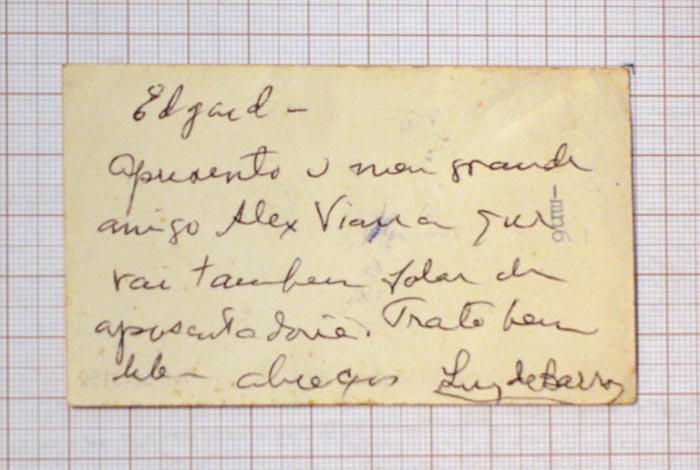 Edgard –
Apresento o meu grande
amigo Alex Vianna que
vai tambem falar de
aposentadoria. Trate bem
dele – abraços Luiz de Barros